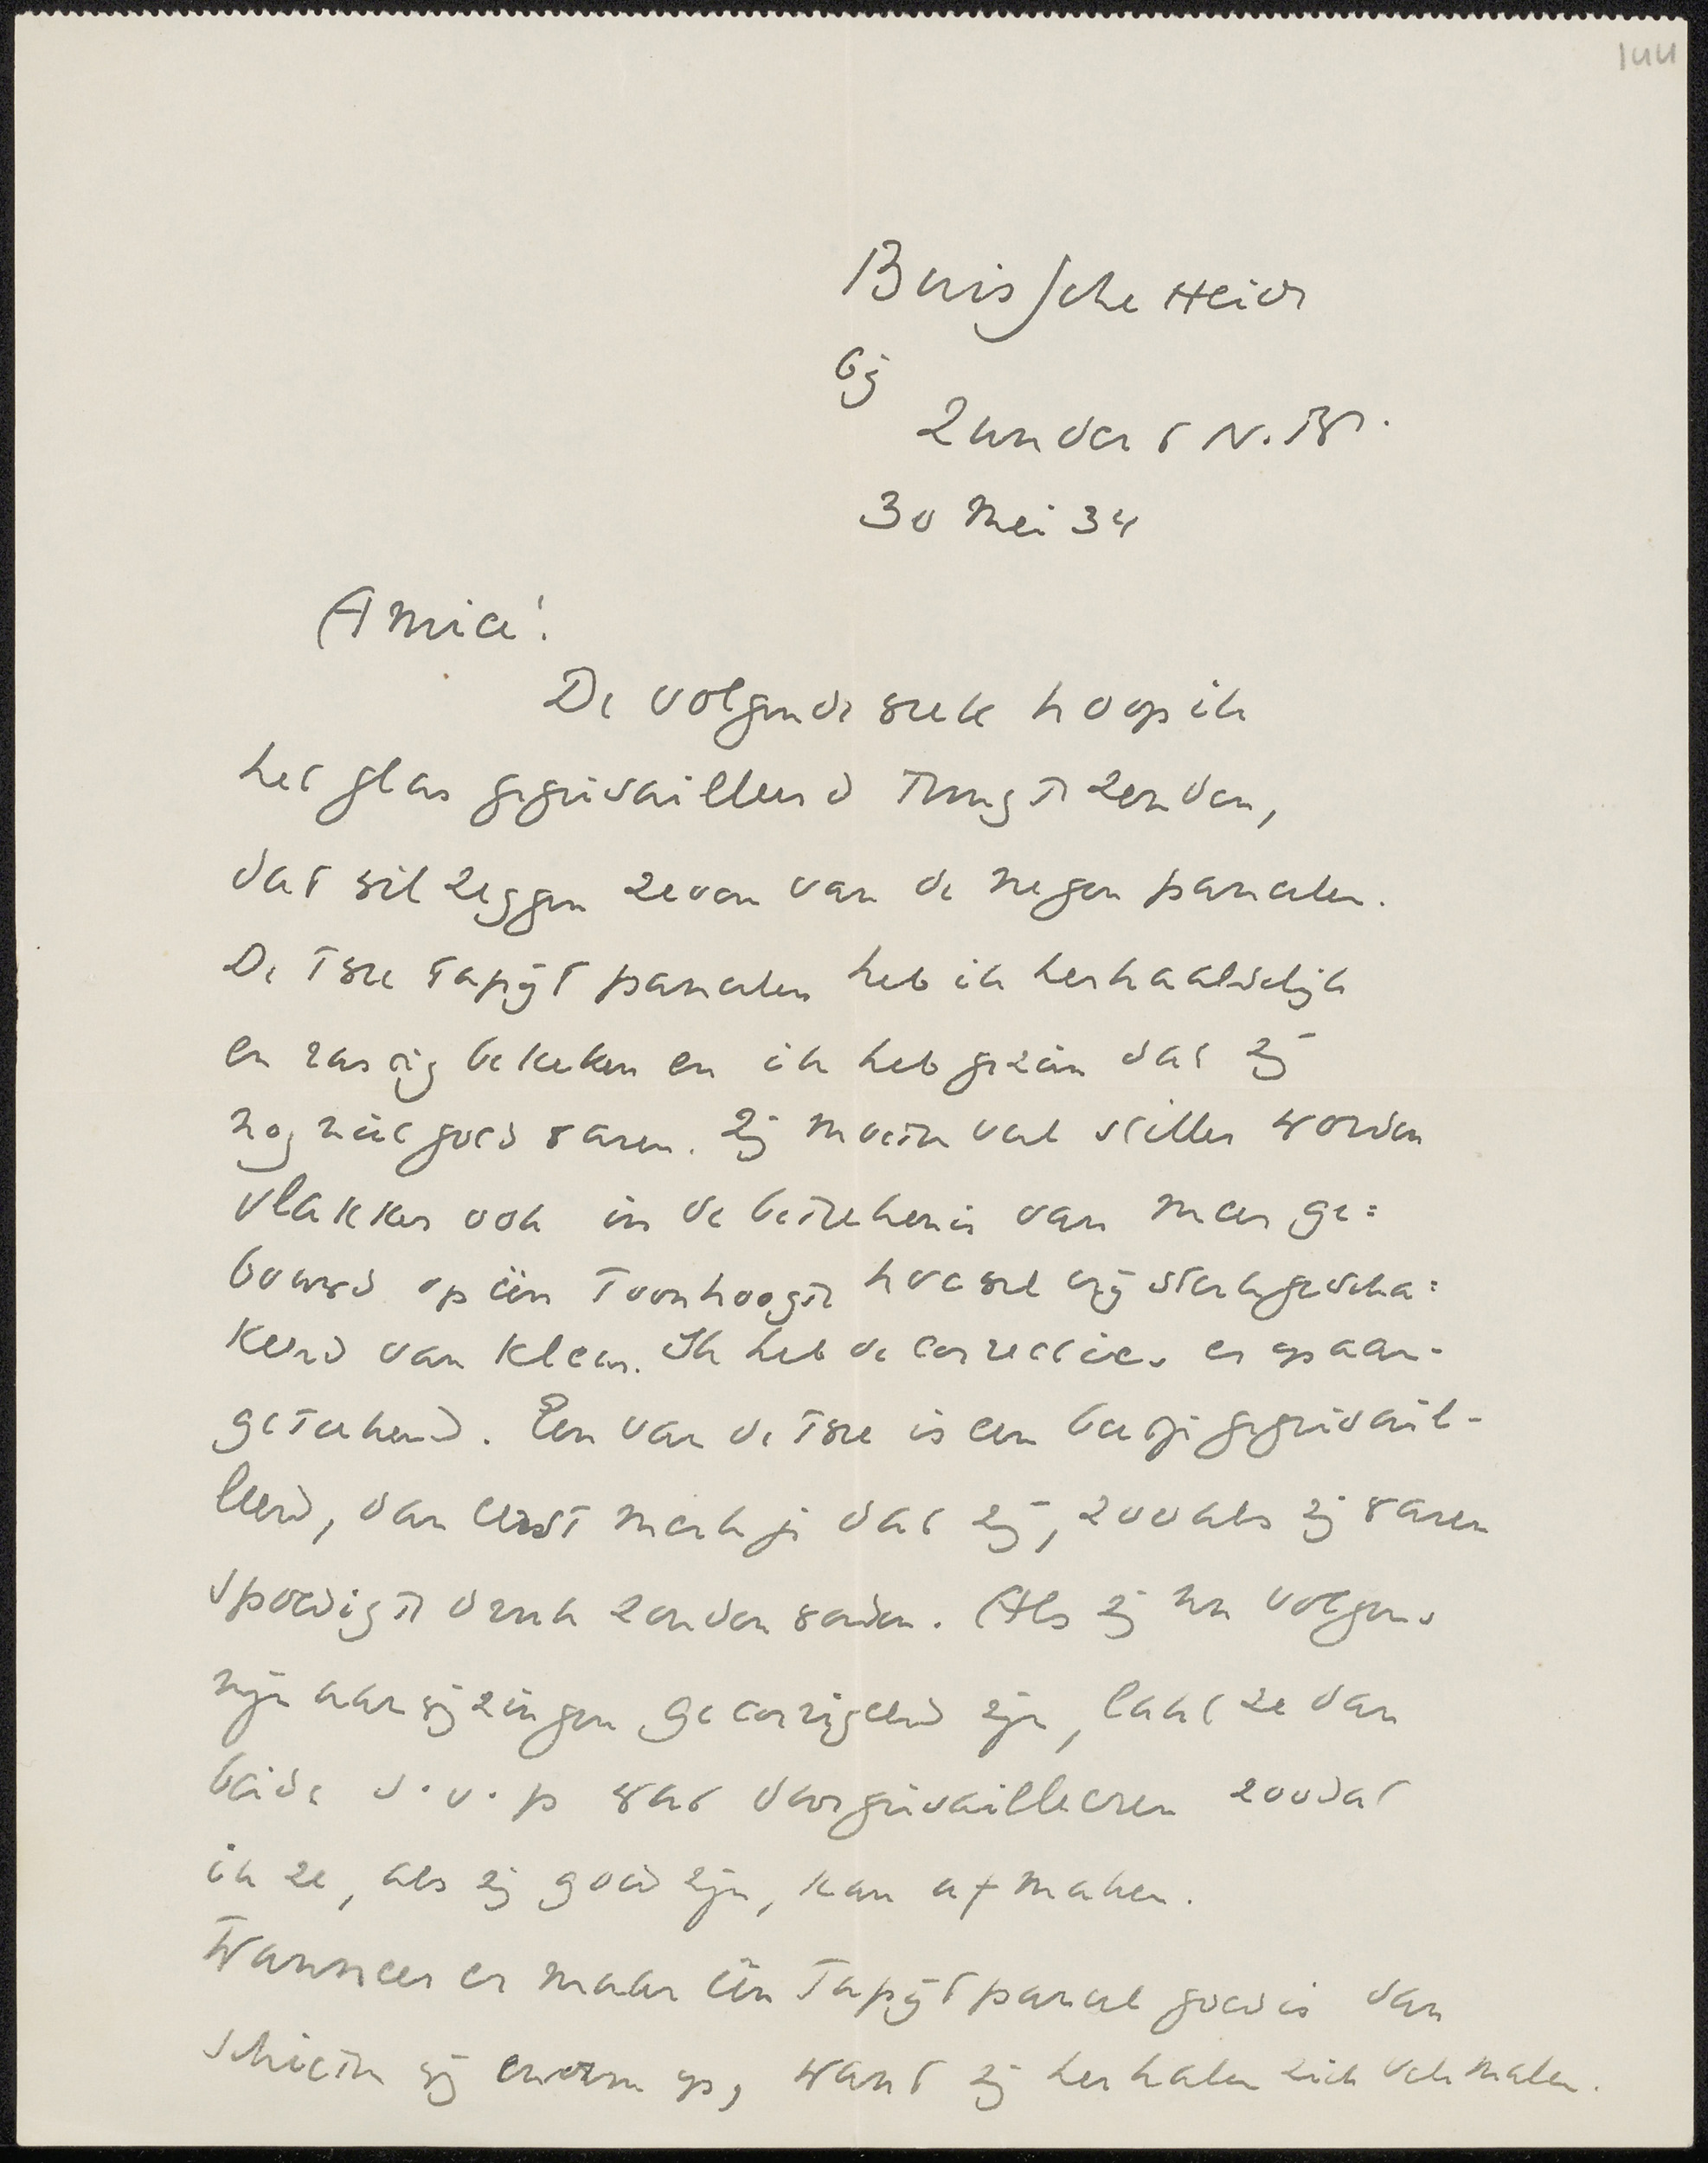 144
Buissche Heide
bij
Zundert N.Br.
30 Mei 34
Amice!
De volgende week hoop ik
het glas gegrisailleerd terug te zenden,
dat wil zeggen zeven van de negen paneelen.
De twee tapijtpaneelen heb ik herhaaldelijk
en rustig bekeken en ik heb gezien dat zij
nog niet goed waren. Zij moeten veel stiller worden
vlakker ook in de beteekenis van meer ge=
bouwd op één toonhoogte hoewel vrij sterk gescha=
keerd van kleur. Ik heb de correcties er op aan-
geteekend. Een van de twee is een beetje gegrisail-
leerd, dan eerst merk je dat zij, zooals zij waren
spoedig te druk zouden worden. Als zij nu volgens
mijn aanwijzingen gecorrigeerd zijn, laat ze dan
beide s.v.p wat voorgrisailleeren zoodat
ik ze, als zij goed zijn, kan afmaken.
Wanneer er maar één tapijtpaneel goed is dan
schieten wij enorm op, want zij herhalen zich vele malen.